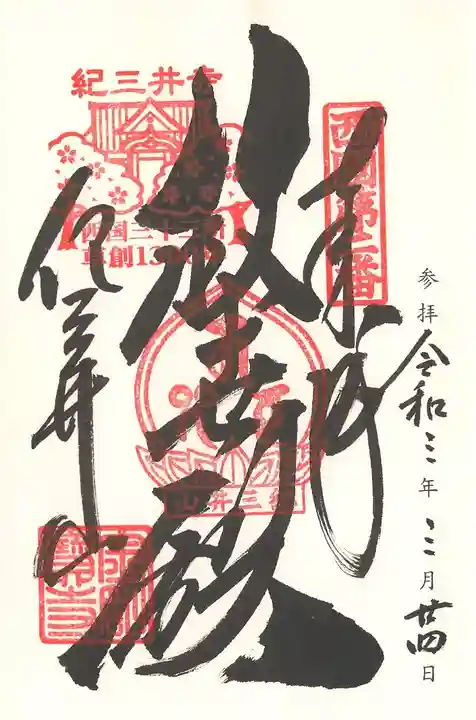 参拝 令和三年三月廿四日
奉拝
西国第二番
救世殿
紀三井寺
西国三十三所
草創1300年
紀三井山
紀三井山